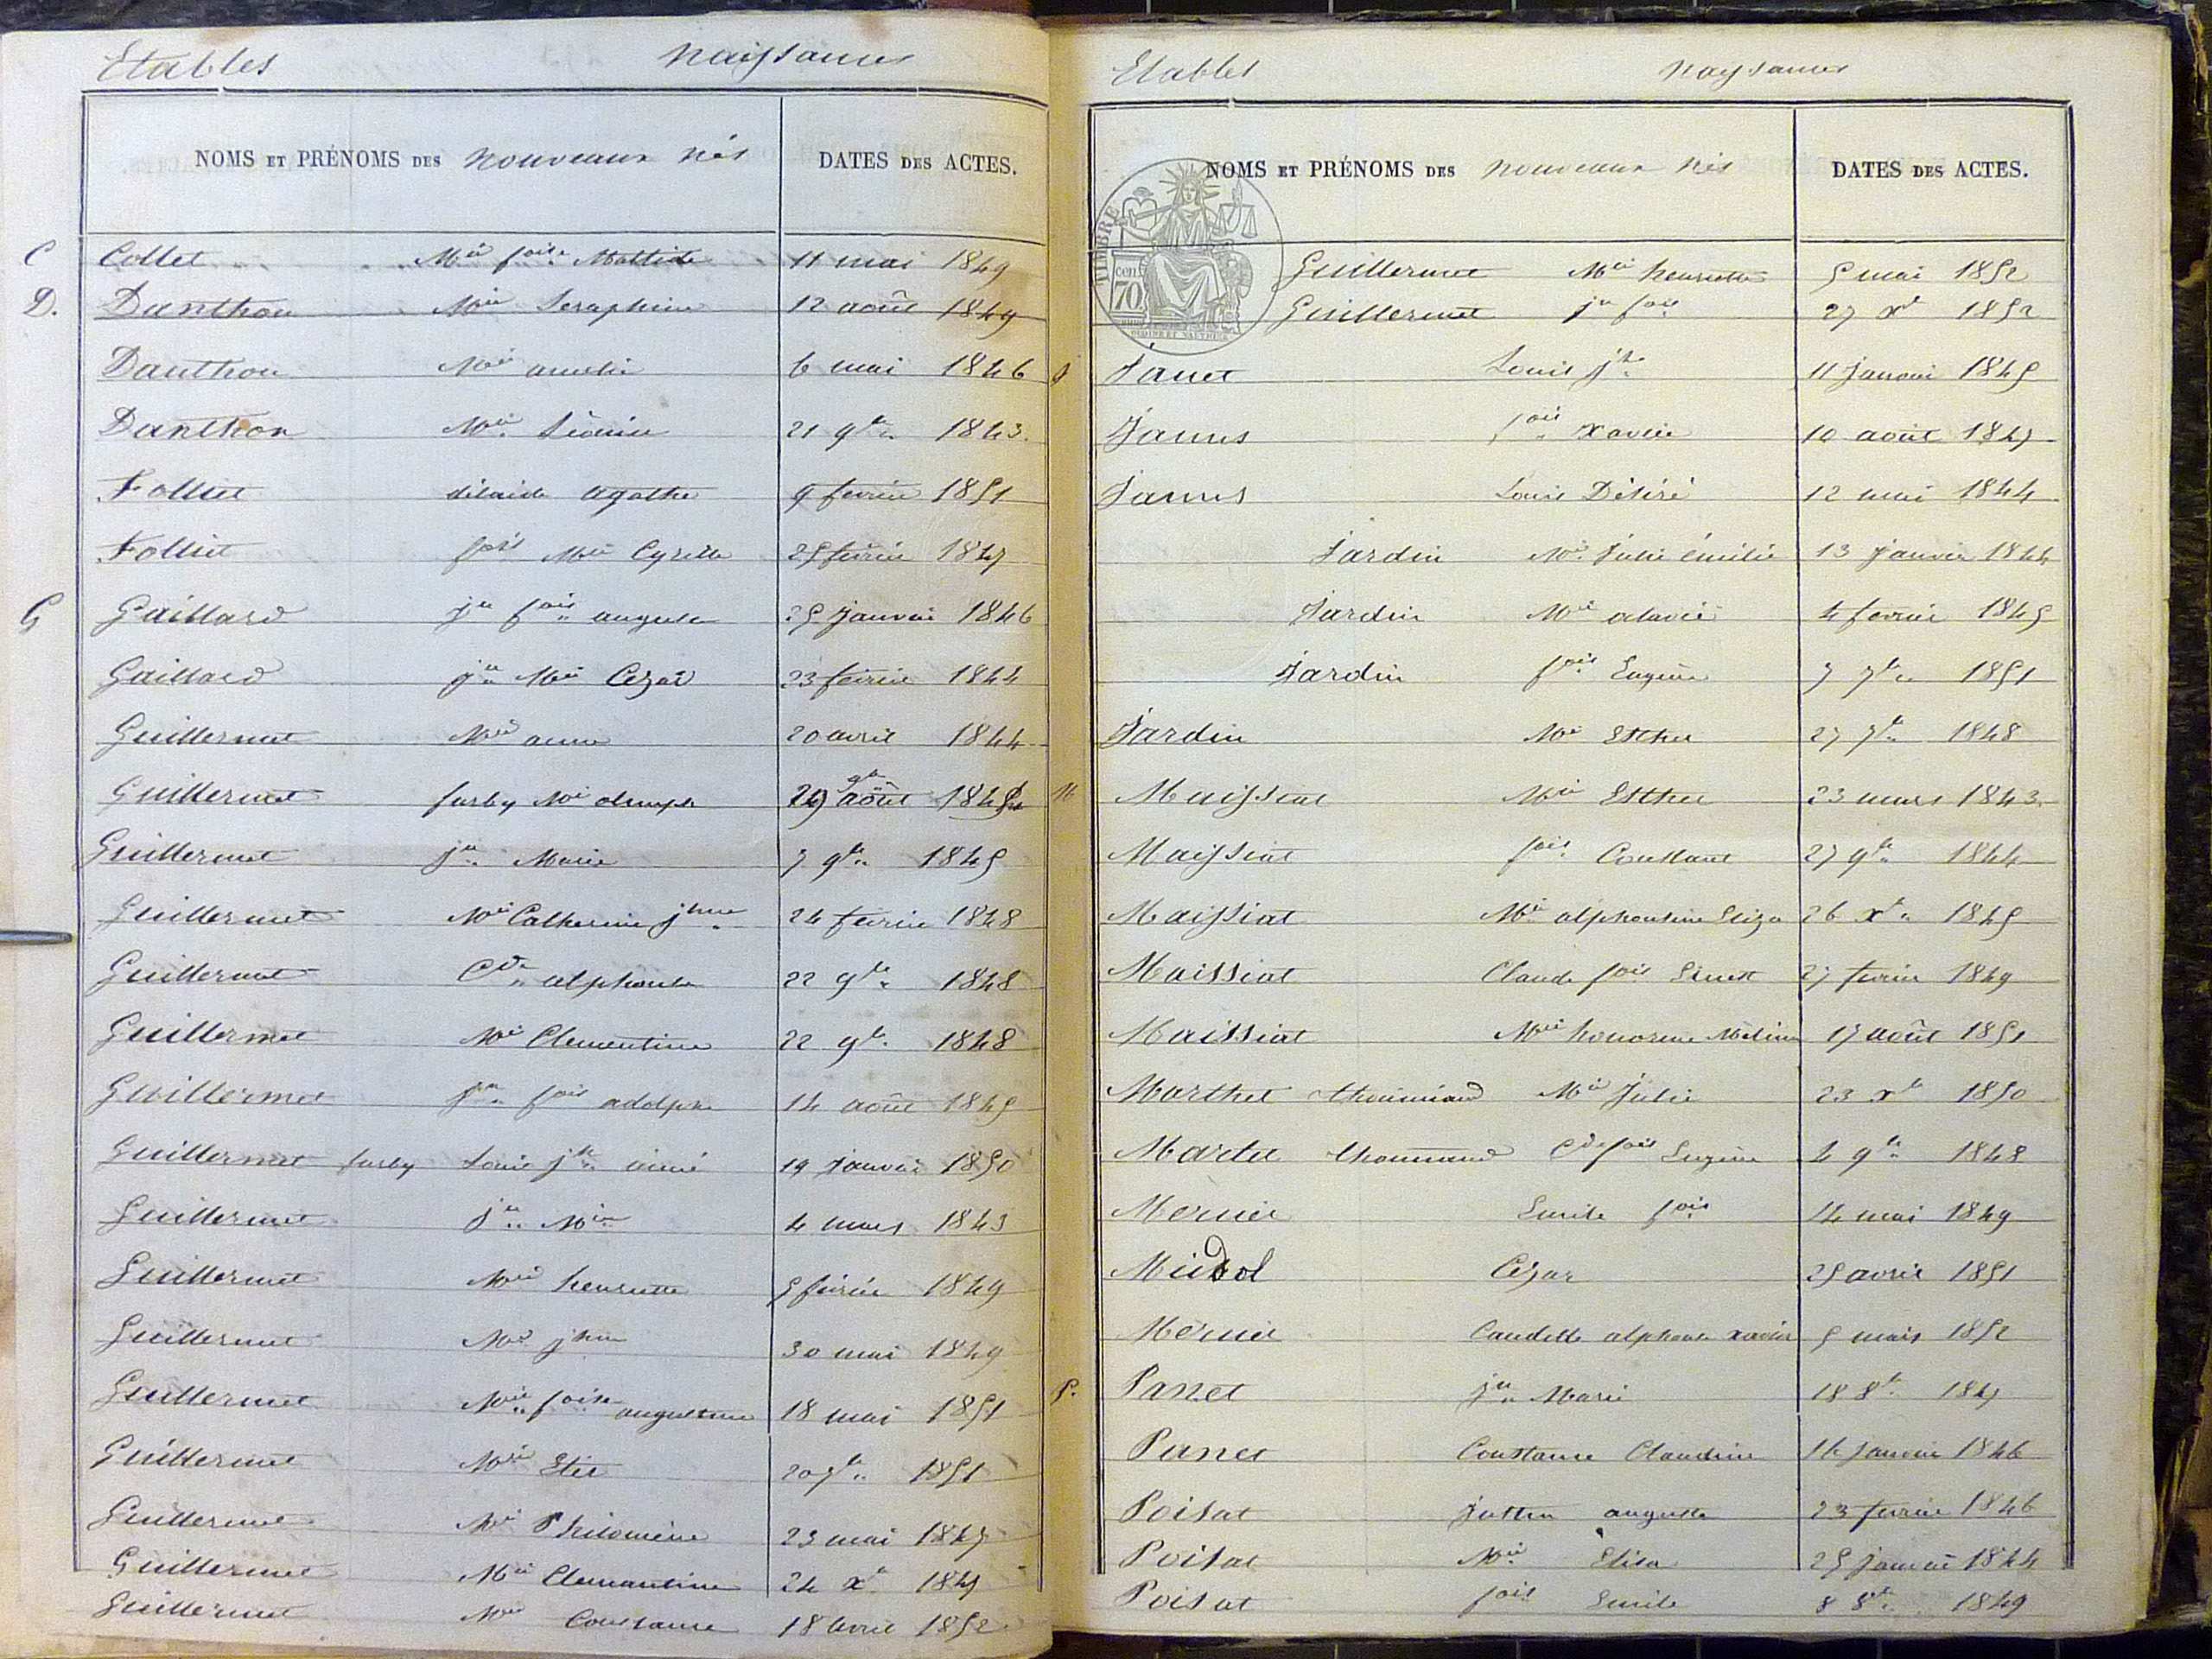 Etables naissances
NOMS ET PRÉNOMS DES nouveaux nés DATES DES ACTES.
C Collet Mie foise Mattide 11 mai 1849
D. Danthon Mie Seraphine 12 août 1849
Danthon Mie amelie 6 mai 1846
Danthon Mie Léonie 21 9bre 1843
Folliet délaide agathe 9 fevrier 1851
Folliet fois Mie Cyrille 25 fevrier 1847
G Gaillard jn fois auguste 25 janvier 1846
Gaillard jn Mie Cezar 23 fevrier 1844
Guillermet Mie anne 20 avril 1844
Guillermet furby Mie olimpe août
Guillermet jn Marie 7 9bre 1845
Guillermet Mie Catherine jhine 24 fevrier 1848
Guillermet Cde alphonse 22 9bre 1848
Guillermet Mie Clementine 22 9bre 1848
Guillermet jn fois adolphe 14 août 1845
Guillermet furby Louis jh aimé 19 Janvier 1850
Guillermet jn Mie 4 mars 1843
Guillermet Mie henriette 5 fevrier 1849
Guillermet Mie jhine 30 mai 1849
Guillermet Mie foise augustine 18 mai 1851
Guillermet Mie 20 7bre 1851
Guillermet Mie Philomène 23 mai 1847
Guillermet Mie Clemantine 24 xbre 1847
Guillermet Mie Constance 18 avril 1852
Etables naissances
TIMBRE
cen 70
NOMS ET PRÉNOMS DES nouveaux nés DATES DES ACTES.
Guillermet Mie henriette 5 mai 1852
Guillermet jn fois 27 xbre 1852
J Janet Louis jh 11 Janvier 1845
James fois xavier 10 août 1847
James Louis Désiré 12 mai 1844
Jardin Mie Julie émilie 13 janvier 1844
Jardin Mie 4 fevrier 1845
Jardin fois Eugène 7 7bre 1851
Jardin Mie Esther 27 7bre 1848
M Maissiat Mie Esther 23 mars 1843
Maissiat fois Constant 27 9bre 1844
Maissiat Mie alphonsine Eliza 26 xbre 1845
Maissiat Claude fois Ernest 27 fevrier 1849
Maissiat Mie honorine Mélina 17 août 1851
Marthet thoumiand Mie Julie 23 xbre 1850
Martet thoumiand Cde fois Eugène 4 9bre 1848
Mernier Emile fois 14 mai 1849
Midol Cézar 25 avril 1851
Mernier Caudelle alphonse xavier 5 mars 1852
P. Panet jn Marie 18 8bre 1847
Panet Constance Claudine 14 janvier 1846
Poisat Justin auguste 23 fevrier 1846
Poisat Mie Elisa 25 janvier 1844
Poisat fois Emile 8 8bre 1849